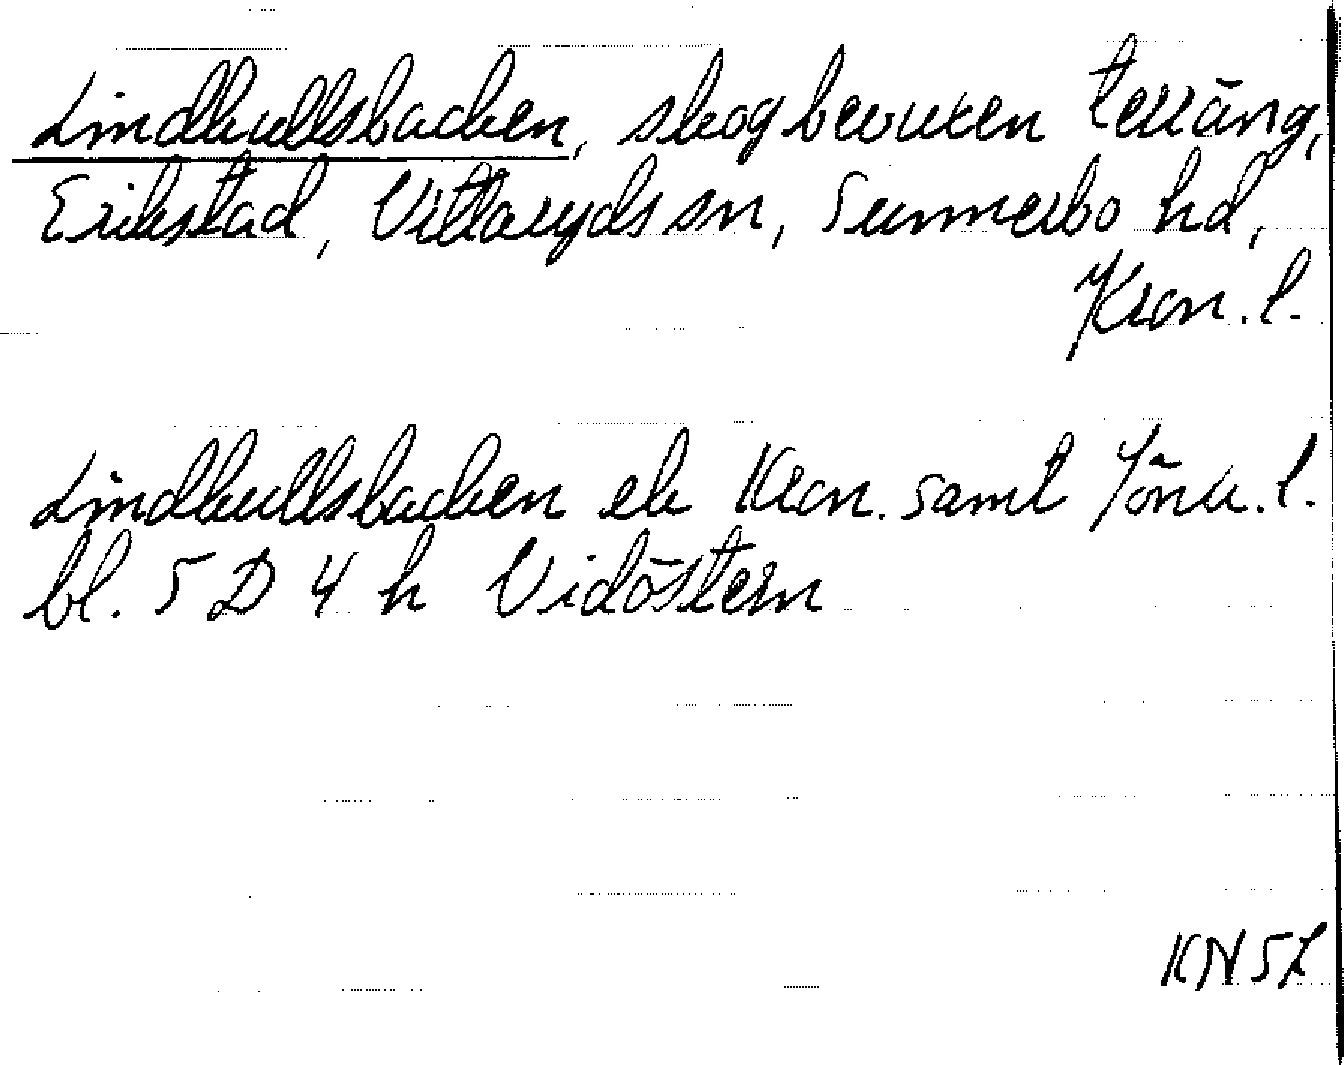 Lindhultsbacken, skogbevuxen terräng,
Erikstad, Vittaryds sn, Sunnerbo hd,
Kron. l.
Lindhultsbacken ek Kron. samt Jönk. l.
bl. 5 D 4 h Vidöstern